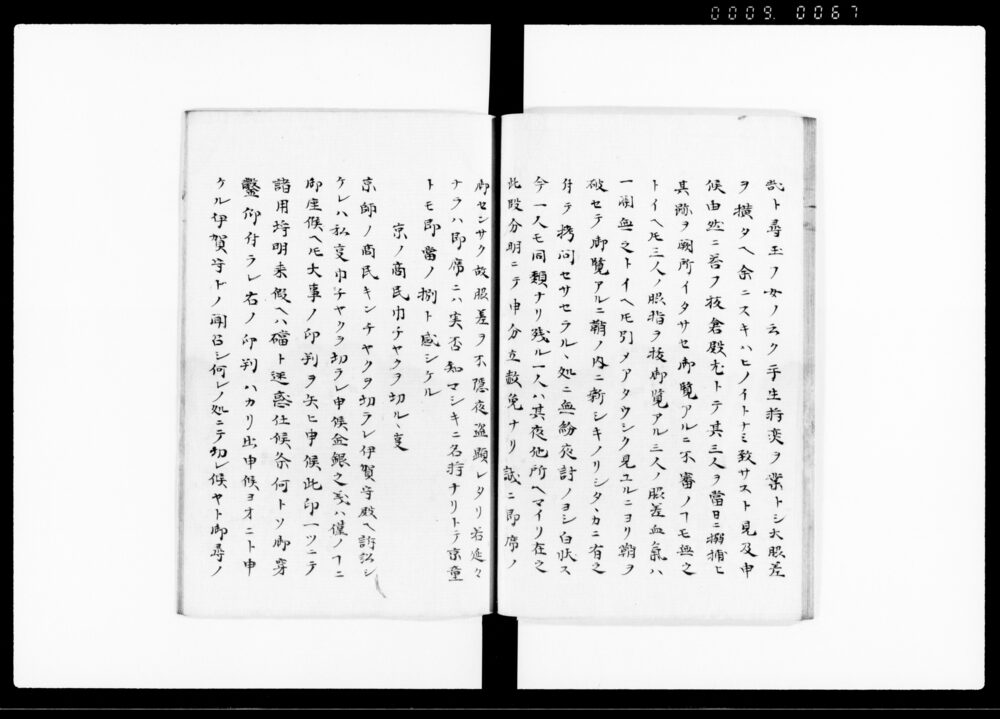 0009. 0067
ト尋玉フ女ノ云ク平生狩奕ヲ業トシ大脇差
ヲ横タヘ余ニスキハヒノイトナミ致サスト見及申
候由然ニ若ヲ板倉殿尤トテ其三人ヲ當日ニ搦捕ヒ
其跡ヲ闕所イタサセ御覧アルニ不審ノヿモ無之
トイヘ𪜈三人ノ脇指ヲ抜御覧アル二人ノ脇差血氣ハ
一圓無之トイヘ𪜈引ノアタウシク見ユルニヨリ鞘ヲ
破セテ御覧アルニ鞘ノ内ニ新シキノリシタヽカニ有之
付テ拷問セサセラルヽ処ニ無紛夜討ノヨシ白状ス
今一人モ同類ナリ残ル一人ハ其夜他所ヘマイリ在之
此段分明ニテ申分立数免ナリ誠ニ即席ノ
御センサク故脇差ヲ不隠夜盗顕レタリ若延々
ナラハ即席ニハ実否知マシキニ名狩ナリトテ京童
トモ即當ノ捌ト感シケル
京ノ商民巾チヤクヲ切ルヽ㕝
京師ノ商民キンチヤクヲ切ラレ伊賀守殿ヘ訴訟シ
ケレハ私㕝巾チヤクヲ切ラレ申候金銀之義ハ僅ノヿニ
御座候ヘ𪜈大事ノ印判ヲ失ヒ申候此印一ツニテ
諸用埒明来候ヘハ礑ト迷惑仕候条何トソ御穿
鑿仰付ラレ右ノ印判ハカリ出申候ヨオニト申
ケル伊賀守トノ聞召シ何レノ処ニテ切レ候ヤト御尋ノ